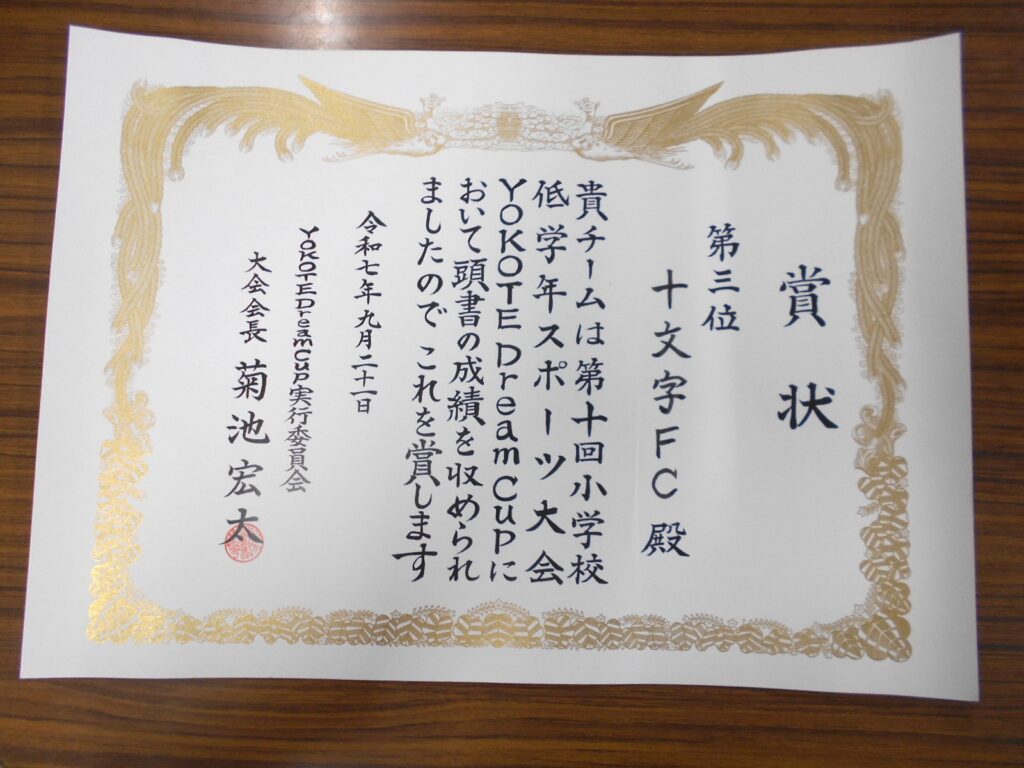 賞状
第三位
十文字FC殿
貴チームは第十回小学校
低学年スポーツ大会
YOKOTE Dream Cupに
おいて頭書の成績を収められ
ましたので これを賞します
令和七年九月二十一日
YOKOTE Dream Cup実行委員会
大会会長 菊池宏太